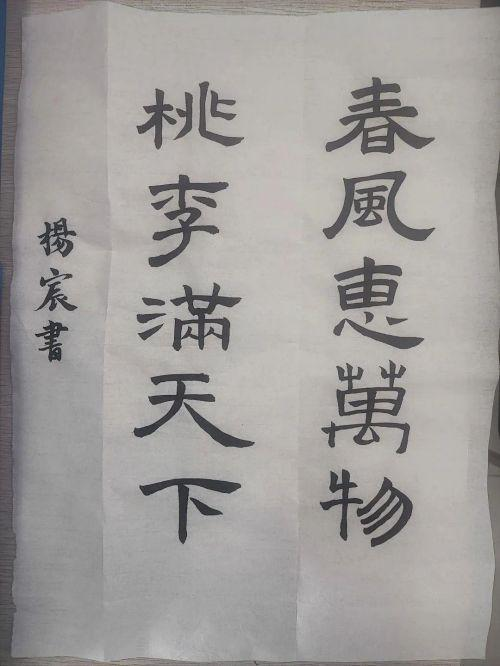 春風惠萬物
桃李滿天下
楊宸書